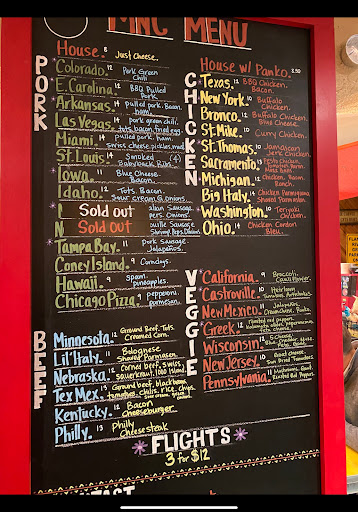 MNC MENU
House. 8 Just Cheese.
PORK
Colorado. 12 Pork Green Chili
E. Carolina. 12 BBQ Pulled Pork.
Arkansas. 14 pulled pork. Bacon. ham.
Las Vegas. 14 pork green chili. tots. bacon. fried egg.
Miami. 14 pulled pork. ham. swiss cheese. pickles. mustard
St. Louis. 14 Smoked (4) Babyback Ribs
Iowa. 11 Blue Cheese. Bacon.
Idaho. 12 Tots. Bacon. sour cream. G. onions.
Sold out Sausage. Onions.
Sold Out Sausage.
Tampa Bay. 11 Pork Sausage. Jalapeños.
Coney Island. 9 Corndogs.
Hawaii. 11 spam. pineapples.
Chicago Pizza. 9 pepperoni. parmesan.
BEEF
Minnesota. 12 Ground Beef. Tots. Creamed Corn.
Lil' Italy. 11 Bolognese Shaved Parmesan
Nebraska. 12 Corned beef, swiss, sauerkraut, 1000 Island.
Tex Mex. 13 Ground beef, black beans, tomatoes, chilis, rice, chips.
Kentucky. 12 Bacon Cheeseburger
Philly. 13 Philly Cheesesteak
CHICKEN
House w/ Panko.
Texas. 12 BBQ Chicken. Bacon.
New York. 10 Buffalo Chicken.
Bronco. 12 Buffalo Chicken. Blue Cheese.
St. Mike. 10 Curry Chicken.
St. Thomas. 10 Jamaican Jerk Chicken.
Sacramento. 13 Pesto Chicken.
Michigan. 12 Chicken. Bacon. Ranch.
Big Italy. Chicken Parmigiana Shaved Parmesan
Washington. 10 Teriyaki Chicken.
Ohio. 14 Chicken Cordon Bleu.
VEGGIE
California. 9 Broccoli. Cauliflower.
Castroville. 10 Heirloom Tomatoes. Artichokes.
New Mexico. 11 Jalapeños. Creamcheese.
Greek. Roasted red peppers, kalamata olives, pepperoncinis, feta cheese.
Wisconsin. 12 5 Cheese
New Jersey. 10 Goat cheese. Sun Dried Tomatoes
Pennsylvania. 11 Mushrooms. Goat. Roasted Bell Peppers
FLIGHTS
3 for $12